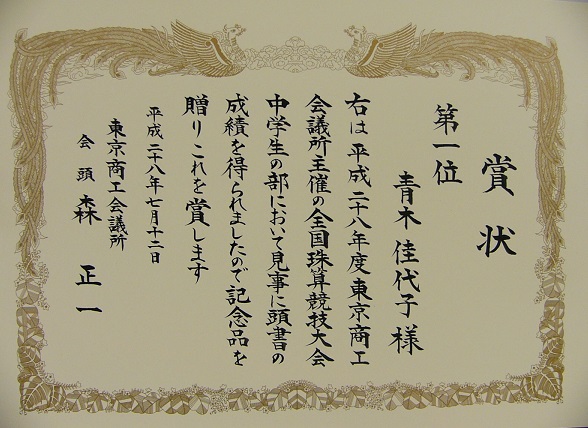 賞状
第一位
青木佳代子様
右は平成二十八年度東京商工
会議所主催の全国珠算競技大会
中学生の部において見事に頭書の
成績を得られましたので記念品を
贈りこれを賞します
平成二十八年七月十二日
東京商工会議所
会頭 森正一